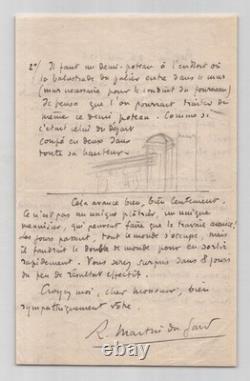 2°/ Il faut un demi-poteau à l'endroit où
la balustrade du palier entre dans le mur
(mur nécessaire pour le conduit du fourneau)
Je pense que l'on pourrait traiter de
même ce demi poteau. Comme si
c'était celui du départ
coupé en deux dans
toute sa hauteur.
Cela avance bien, bien lentement.
Ce n'est pas un unique plâtrier, un unique
menuisier, qui peuvent faire que le travail avance!
Les jours passent, tout le monde s'occupe, mais
il faudrait le double de monde pour en sortir
rapidement. Vous serez surpris dans 8 jours
du peu de résultat effectif.
Croyez moi, cher Monsieur, bien
sympathiquement vôtre
R. Martin du Gard
© hibou.com